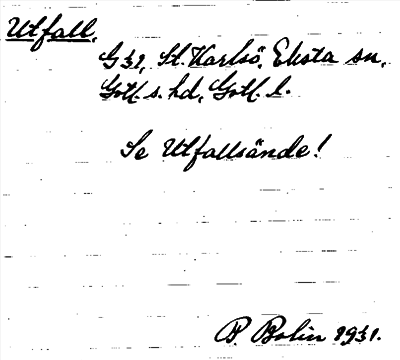 Utfall.
G 32, St. Karlsö, Eksta sn,
Gotl. s. hd, Gotl. l.
Se Utfallsände!
P. Bolin 1931.